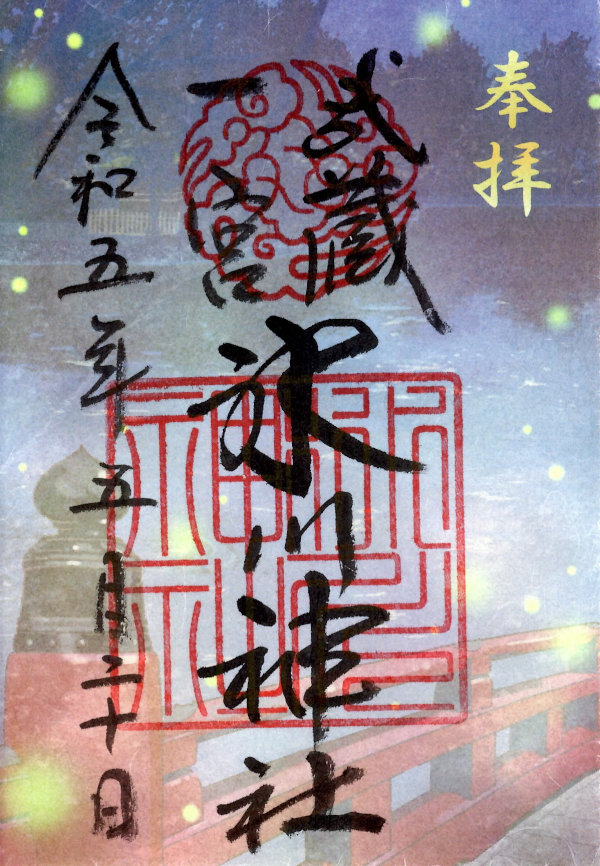 奉拝
武蔵
一宮
氷川神社
令和五年五月二十日